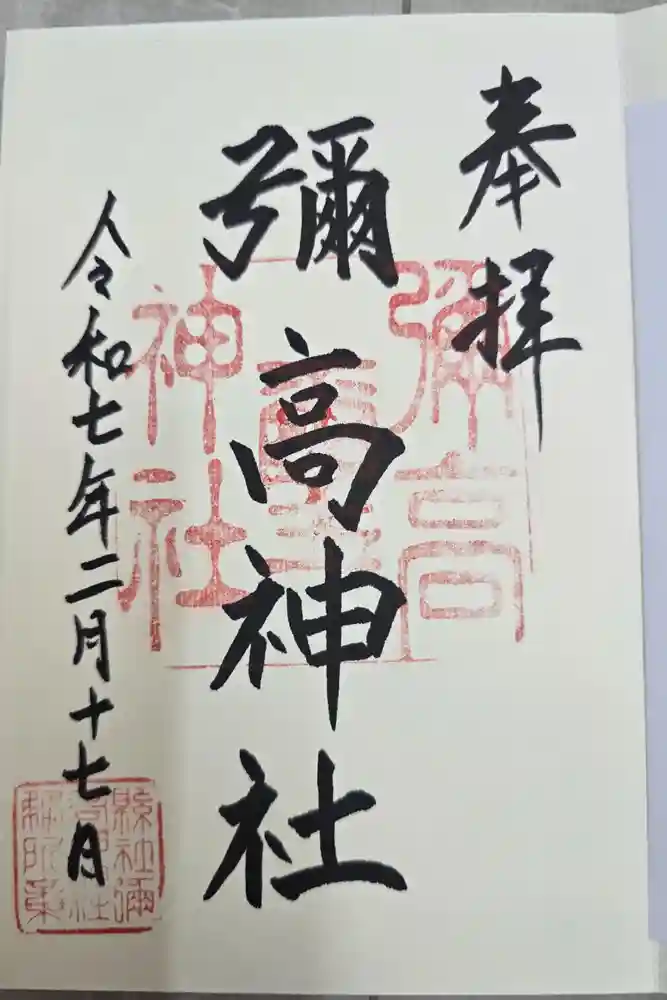 奉拝
彌高神社
令和七年二月十七日
彌高
神社
縣社彌
高神社